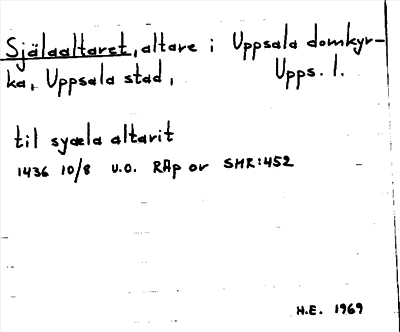 Själaaltaret, altare i Uppsala domkyr-
ka, Uppsala stad, Upps. l.
til syæla altarit
1436 10/8 u.o. RAp or SMR:452
H.E. 1969